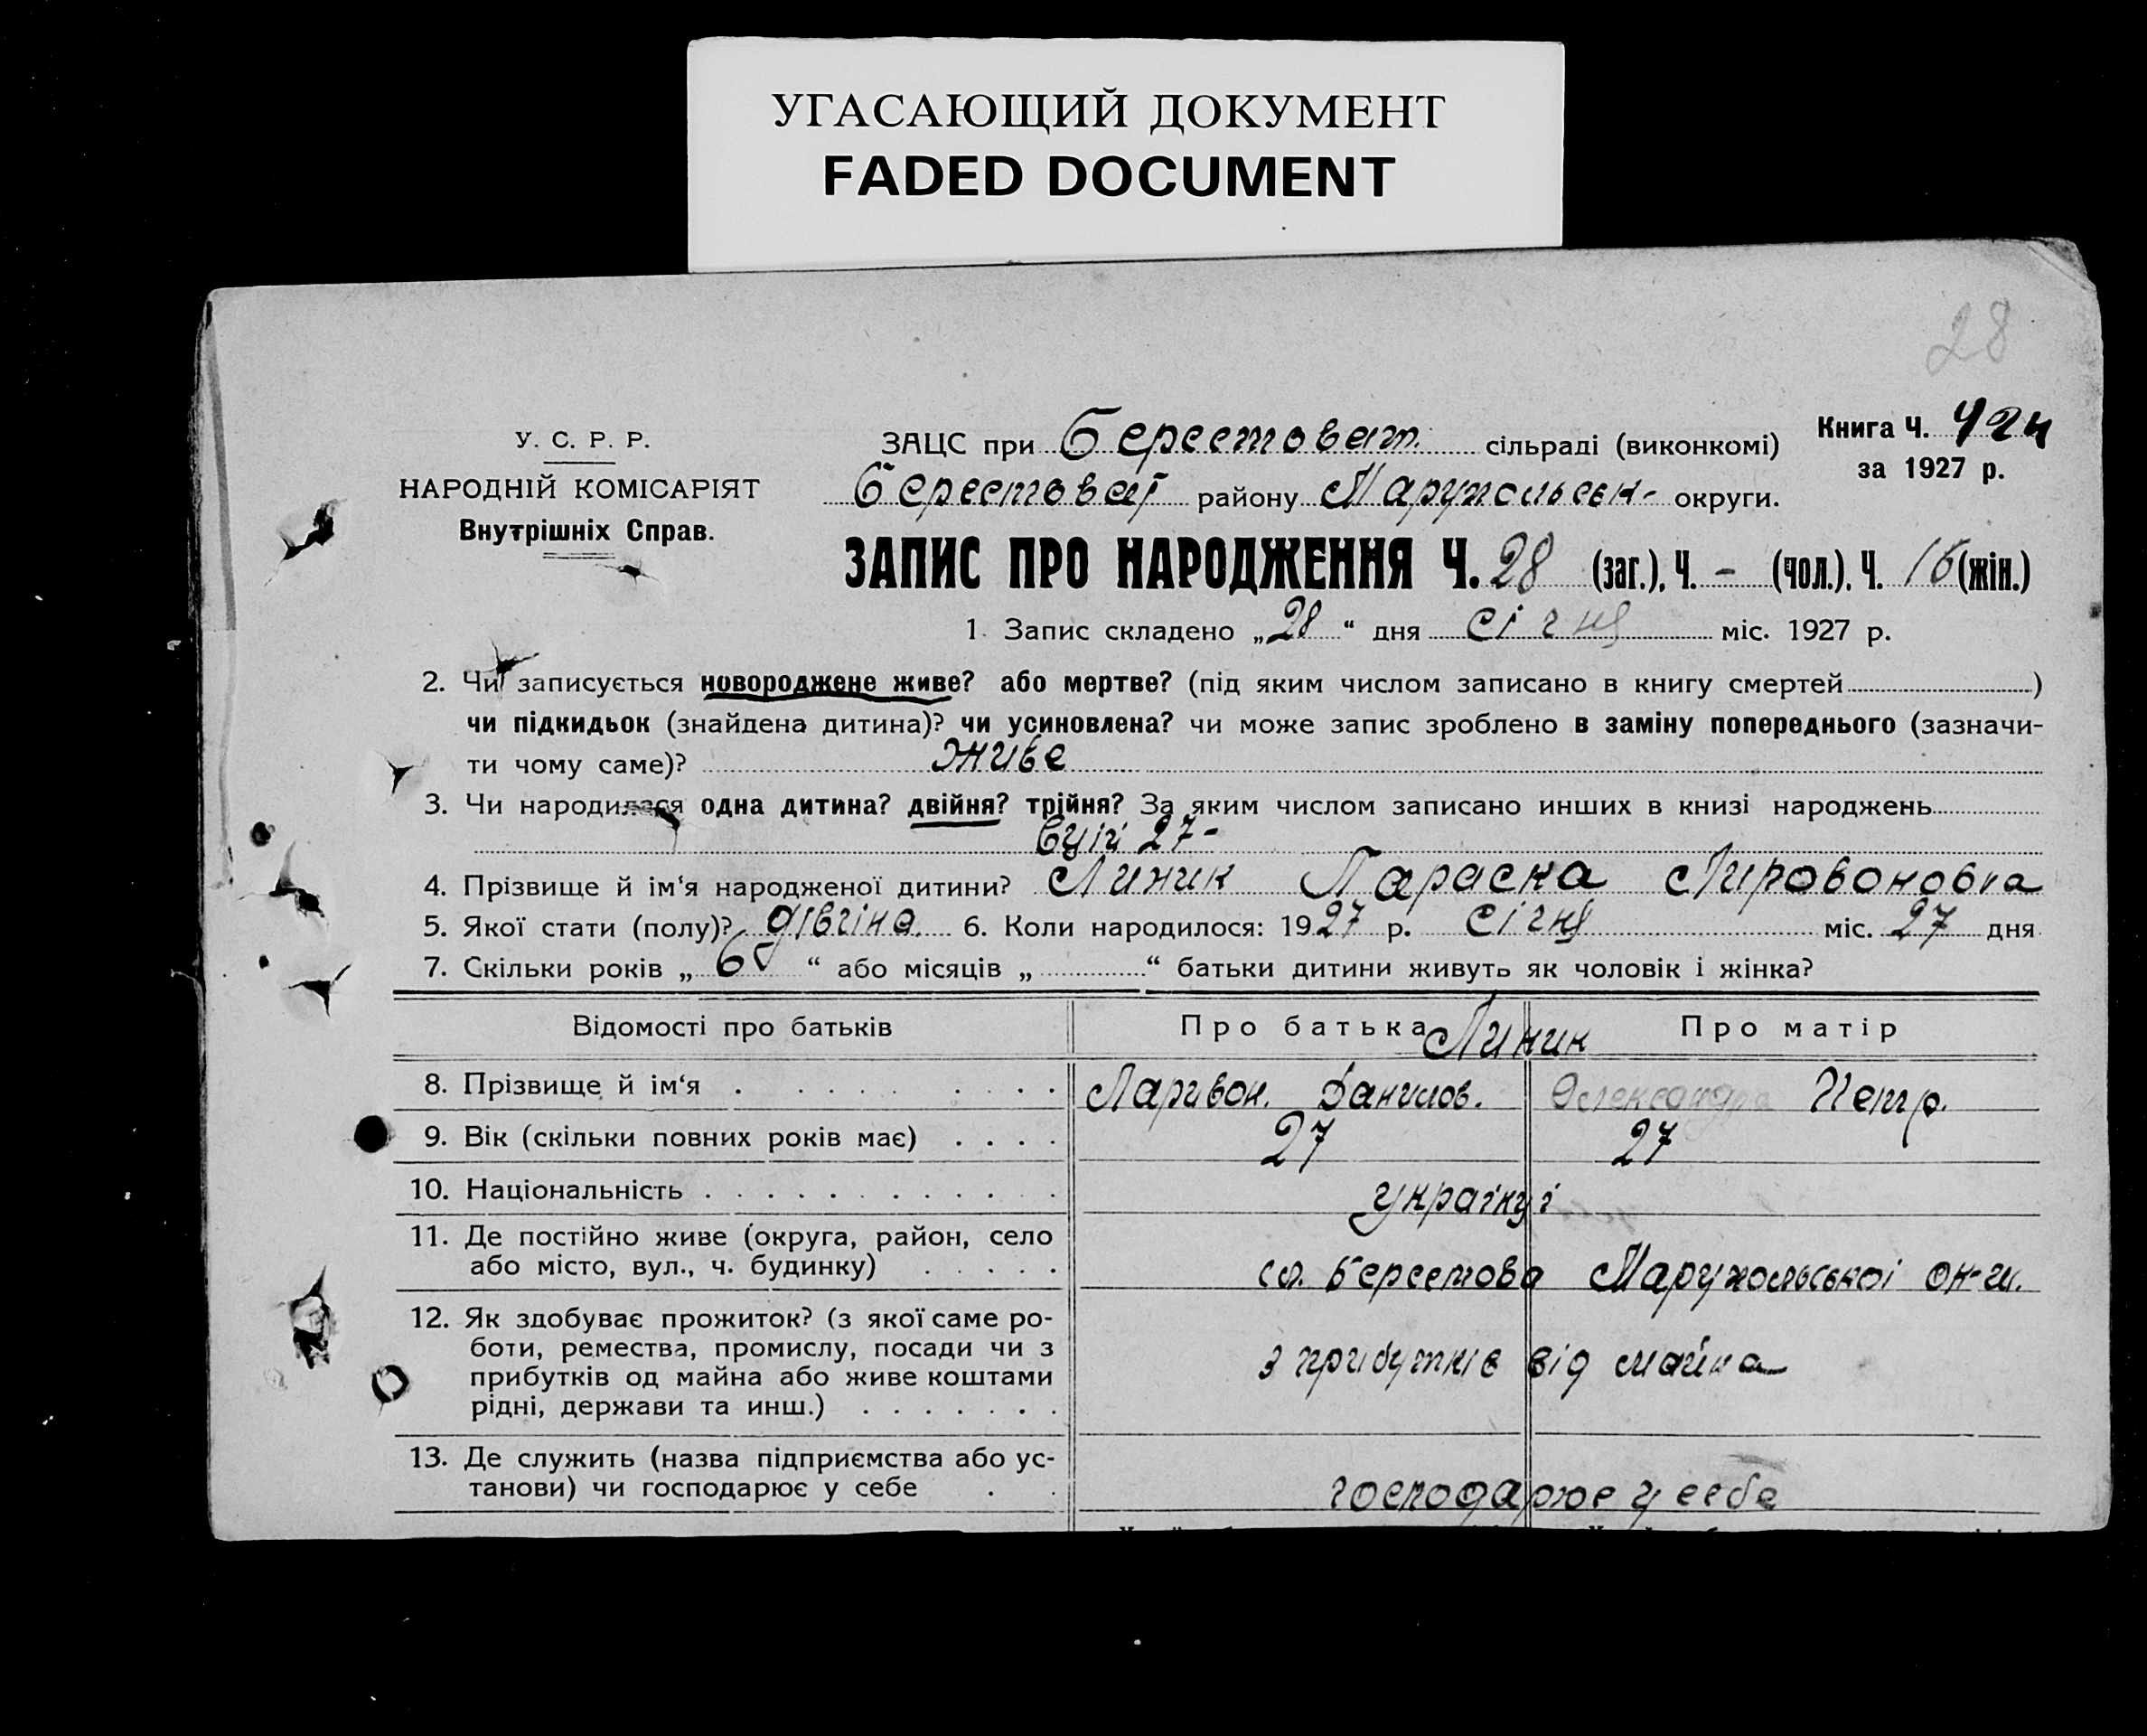 УГАСАЮЩИЙ ДОКУМЕНТ
FADED DOCUMENT
28
У. С. Р. Р.
НАРОДНІЙ КОМІСАРІЯТ
Внутрішніх Справ.
ЗАЦС при Берестоват. сільраді (виконкомі)
Берестоват району Маріупольськ- округи.
Книга Ч.
за 1927 р.
ЗАПИС ПРО НАРОДЖЕННЯ Ч. 28 (заг.), Ч. - (чол.), Ч. (жін.)
1. Запис складено „28“ дня січня міс. 1927 р.
2. Чи записується новороджене живе? або мертве? (під яким числом записано в книгу смертей)
чи підкидьок (знайдена дитина)? чи усиновлена? чи може запис зроблено в заміну попереднього (зазначи-
ти чому саме)? живе
3. Чи народилася одна дитина? двійня? трійня? За яким числом записано инших в книзі народжень
27-
4. Прізвище й ім‘я народженої дитини? Линик Параска
5. Якої стати (полу)? дівчіна. 6. Коли народилося: 1927 р. січня міс. 27 дня
7. Скільки років „ “ або місяців „ “ батьки дитини живуть як чоловік і жінка?
Відомості про батьків Про батька Линик Про матір
8. Прізвище й ім‘я Ларивон. Данилов. Олександра Петр.
9. Вік (скільки повних років має) 27 27
10. Національність українці
11. Де постійно живе (округа, район, село
або місто, вул., ч. будинку) сл. Берестова Маріупольської ок-ги.
12. Як здобуває прожиток? (з якої саме ро-
боти, ремества, промислу, посади чи з
прибутків од майна або живе коштами
рідні, держави та инш.) з прибутків від майна
13. Де служить (назва підприємства або ус-
танови) чи господарює у себе господарює у себе